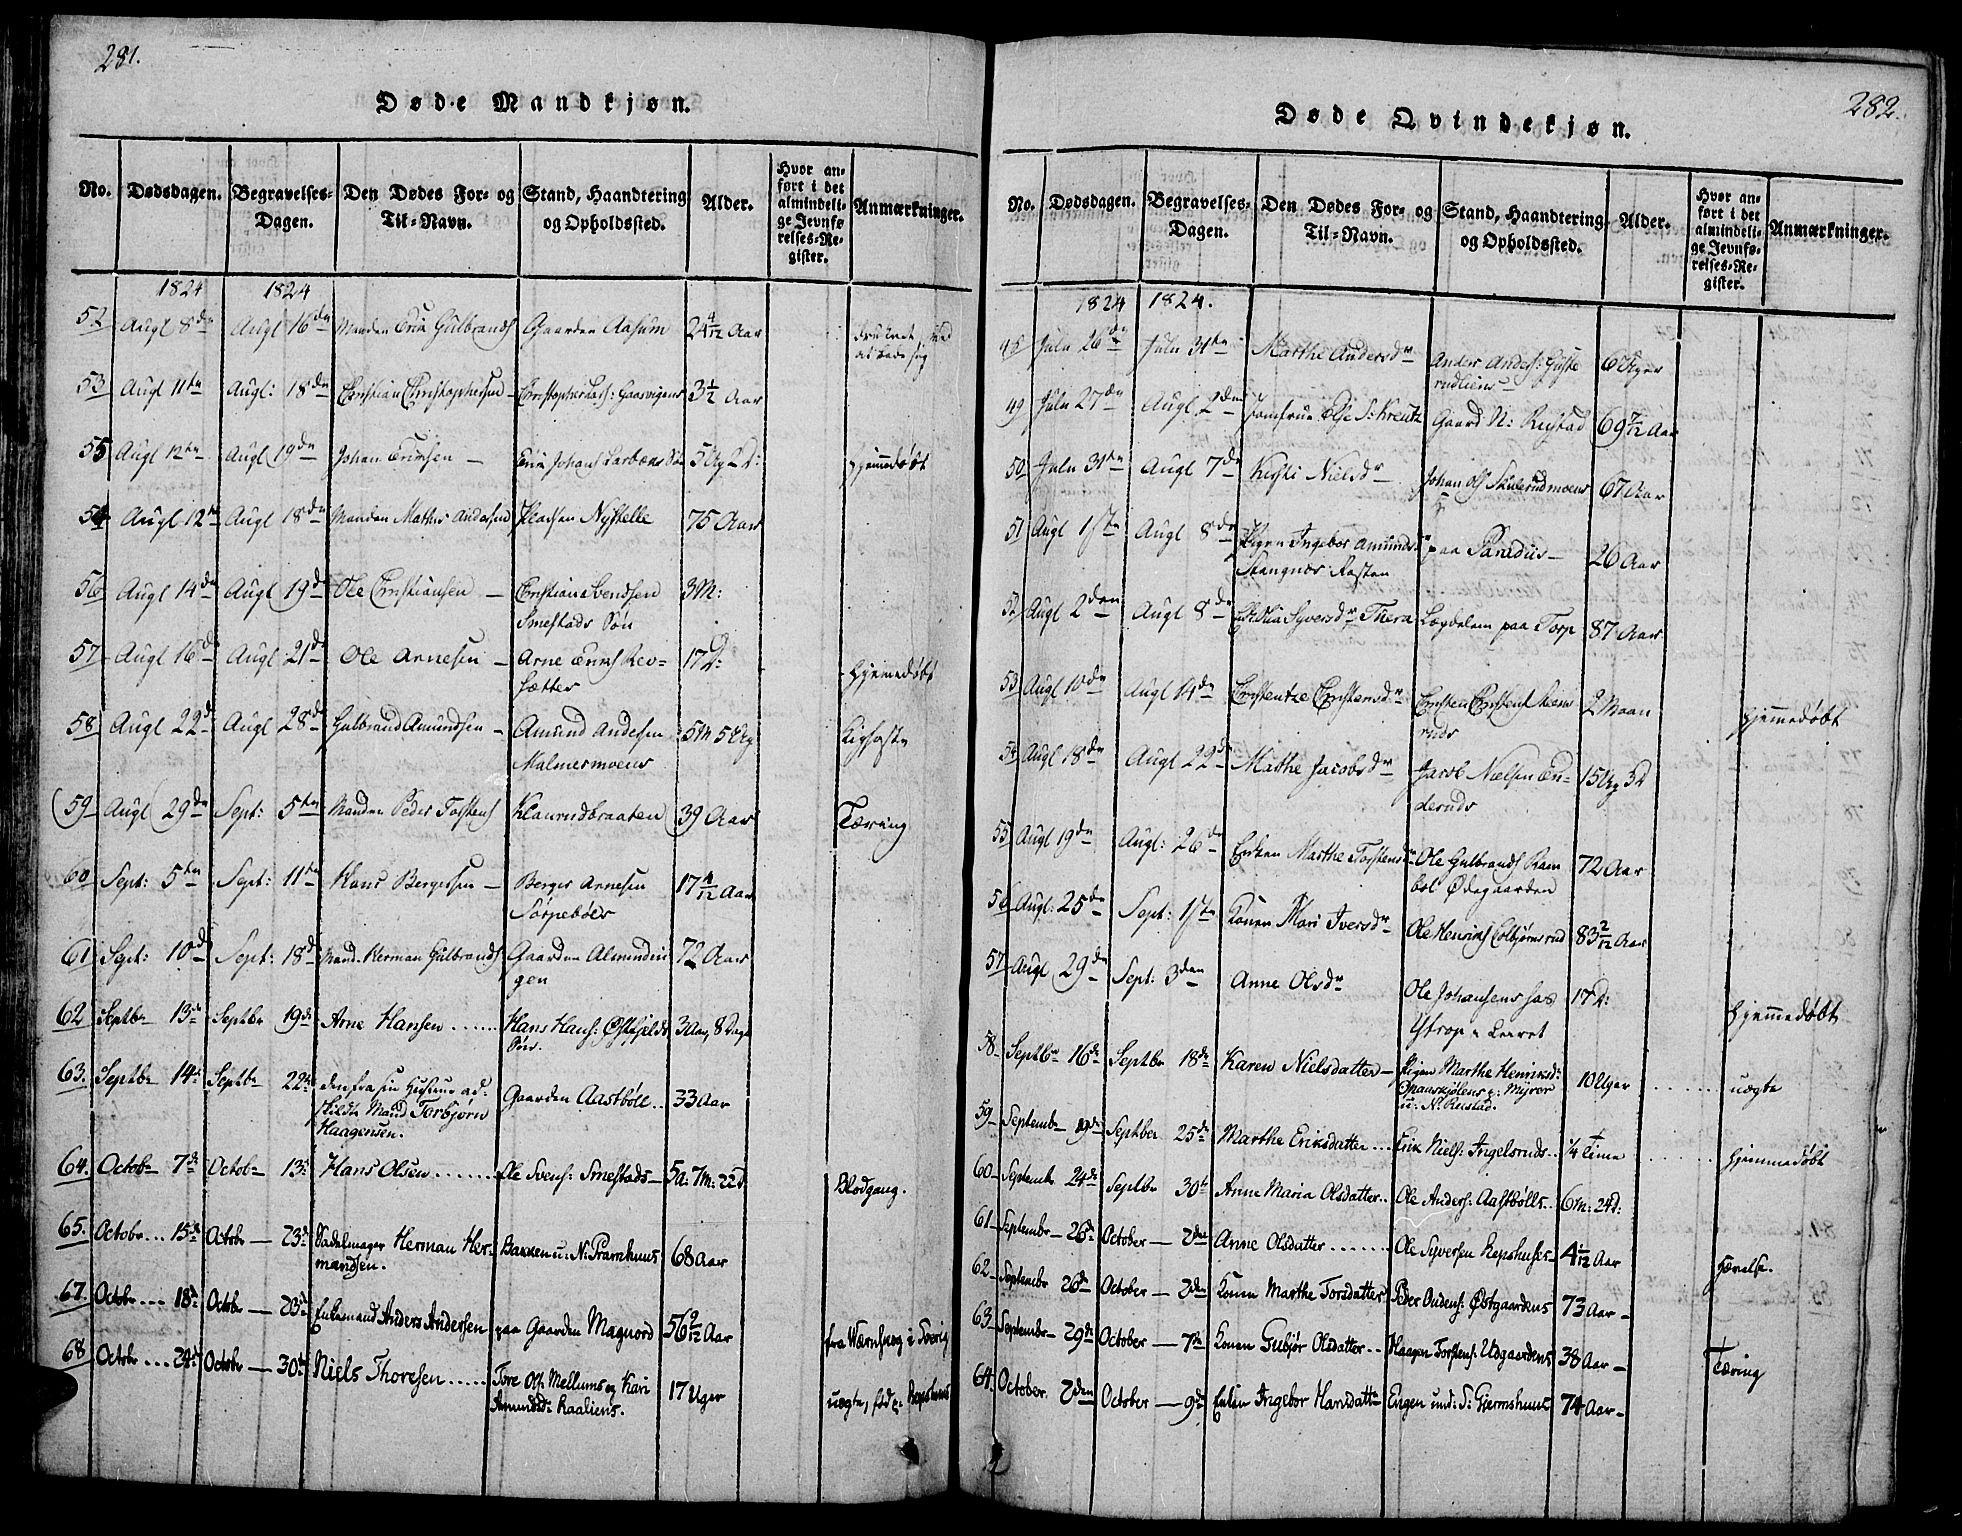 281.
Døde Mandkjøn.
No. Dødsdagen. Begravelses-Dagen. Den Dødes For- og Til-Navn. Stand, Haandtering og Opholdssted. Alder. Hvor anført i det almindelige Jevnførelses-Register. Anmærkninger.
1824 1824
52 Augl 8de Augl 16de Manden Erik Gulbrands Gaarden Aasum 24 4/12 Aar
53 Augl 11te Augl: 18de Christian Christophersen Christopher Lars: Gaasvigens 3 1/2 Aar
55 Augl 12te Augl 19de Johan Eriksen – Erik Johans 5 Ug 2 D: Hjemmedøbt
54 Augl 12te Augl 18de Manden Mathis Andersen Pladsen Nystelle 75 Aar
56 Augl 14de Augl 19de Ole Christiansen – Christian Svendsen 3 M:
Smestads Søn
57 Augl 16de Augl 21de Ole Arnesen – Arne Erichs Rev- 17 D: Hjemmedøbt
sætter
58 Augl 22de Augl 28de Gulbrand Amundsen – Amund Andersen 5 M 5 Ug
Malmermoens
59 Augl 29de Sept: 5te Manden Peder Torstens Klaurudbraaten 39 Aar Tæring
60 Sept: 5te Sept: 11te Hans Bergersen – Berger Arnesen 17 4/12 Aar
Sørpebøls
61 Sept: 10de Sept: 18de Mand. Herman Gulbrands Gaarden Almindin 72 Aar
gen
62 Septbr 13de Septbr 19de Arne Hansen ...... Hans Hans: Østfjelds 3 Aar, 8 Dage
Søn.
63. Septbr 14de Septbr 22de den fra sin Hustrue ad- Gaarden Aastbøll.. 33 Aar
skildte Mand Torbjørn
Haagensen.
64. Octobr 7de Octobr 13de Hans Olsen ....... Ole Svens: Smestads – 5 A: 7 M: 22 D. Blodgang.
65. Octobr... 15de Octobr — 23de Sadelmager Herman Her- Bakken u. N. Pramhuus 68 Aar
mandsen.
67. Octobr.... 18de Octobr — 23de Enkemand Anders Andersen paa Gaarden Magnord 56 9/12 Aar fra i Sverig
68 Octobr.... 24de Octobr — 30te Niels Thoresen ..... Tore Ols: Mellums og Kari 17 Uger uægte, fød p.
Amundsd: Kaaliens.
282.
Døde Qvindekjøn.
No. Dødsdagen. Begravelses-Dagen. Den Dødes For- og Til-Navn. Stand, Haandtering og Opholdssted. Alder. Hvor anført i det almindelige Jevnførelses-Register. Anmærkninger.
1824 1824.
Julii 26de Julii 31te Marthe Andersdr Anders Anders: 6 Uger
49 Julii 27de Augl 2den Jomfrue Else S: Kreutz Gaard N: Rustad 69 7/12 Aar
50 Julii 31te Augl 7de Kisti Nielsdr Johan Ols Skulerudmoens 67 Aar
51 Augl 1ste Augl 8de Pigen Ingebor Amundsdr paa Paradiis – 26 Aar
Stangnæs Rasten
52 Augl 2den Augl 8de Syversdr Thera Lægdelem paa Torp 87 Aar
53 Augl 10de Augl 14de Christentze Christensdr 2 Maan Hjemmedøbt
ruds
54 Augl 18de Augl 22de Mathe Jacobsdr Jacob Nielsen En- 15 Ug 3 D
deruds
55 Augl 19de Augl: 26de Enken Marthe Torstensdr Ole Gulbrands Ram 72 Aar
bøl Ødegaarden
56 Augl: 25de Sept: 1ste Konen Mari Iversdr Ole Henriks Colbjørnsrud 83 2/12 Aar
57 Augl 29de Sept: 3den Anne Olsdr Ole Johansens hos 17 D: Hjemmedøbt
58 – Septbr 16de Septbr 18de Karen Nielsdatter – Pigen Marthe Henriksd: 10 Uger ..... uægte
u: N: Reistad.
59 – Septembr 19de Septber 25de Marthe Eriksdatter ... Erik Niels: Ingelsruds.. 1/4 Time ...... Hjemmedøbt
60 – Septembr 24de Septbr 30te Anne Maria Olsdatter.. Ole Anders: Aastbølls.. 6 M: 24 D:
61 – Septembr 26de October – 2den Anne Olsdatter ....... Ole Syversen Repshuses – 4 1/12 Aar Hævelse.
62 – Septembr 26de October – 3die Konen Marthe Torsdatter Peder Oudens: Østgaardens 73 Aar –
63 – Septembr – 29de October – 7de Konen Gubjør Olsdatter .. Haagen Torstens: Udgaardens 38 Aar – Tæring
64. October. 2den October – 9de Enken Ingebor Hansdattr Engen und: S: Gjermshuus 74 Aar –